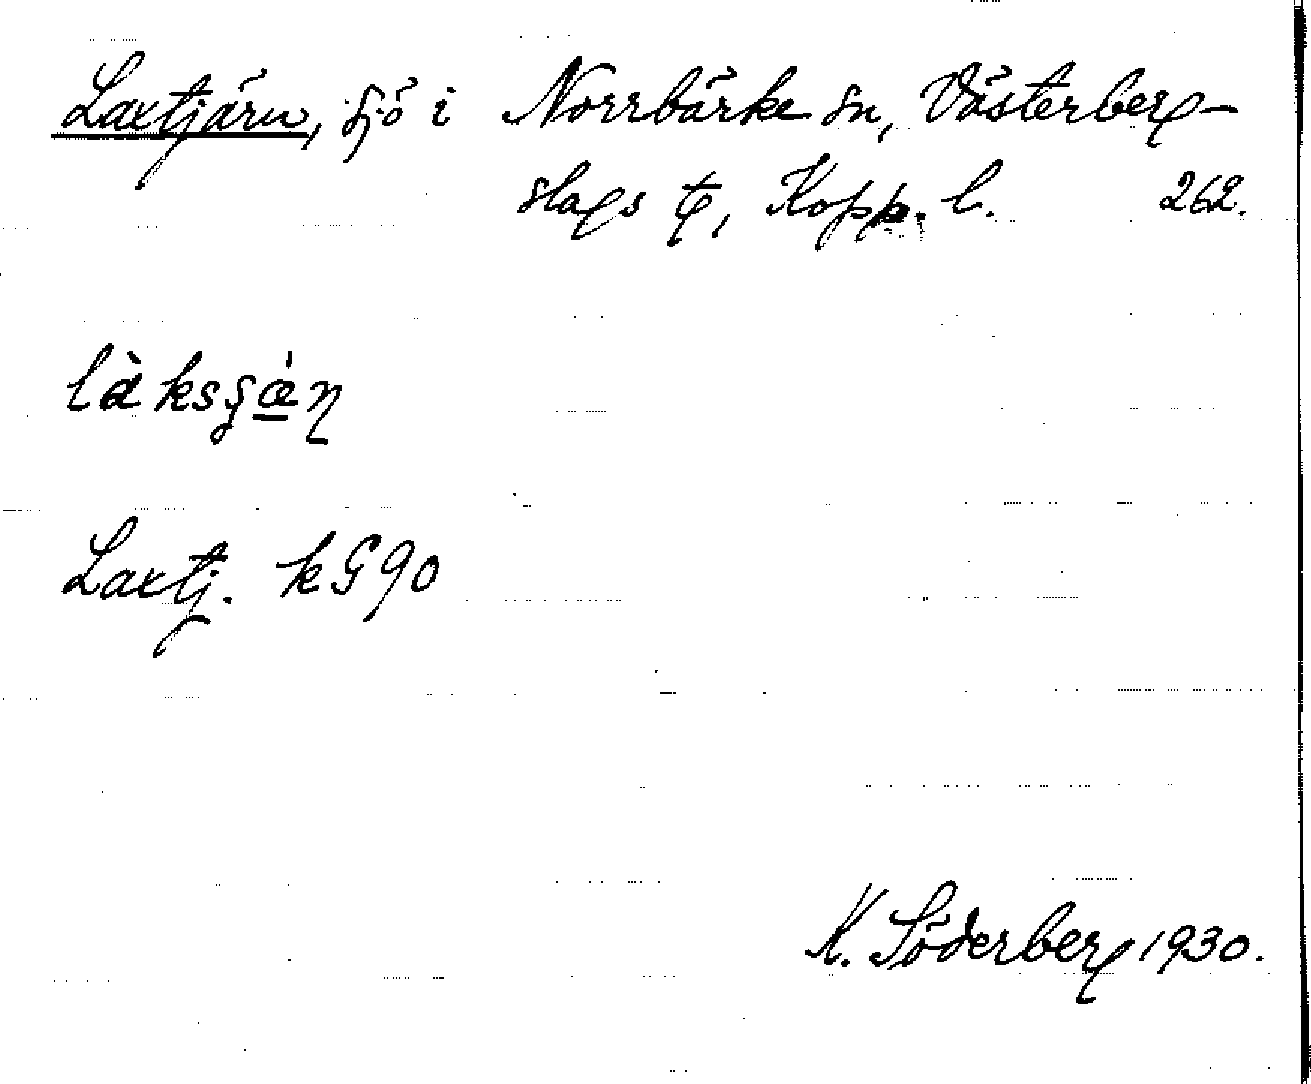 Laxtjärn, sjö i Norrbärke sn, Västerberg-
slags tg, Kopp. l. 262.
làksʂæ̲̀ɳ
Laxtj. kG90
K. Söderberg 1930.